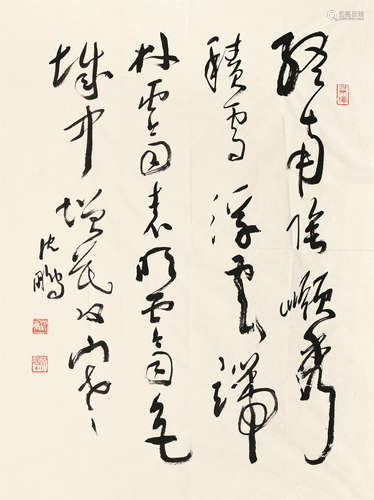 終南陰嶺秀
積雪浮雲端
林霽表明霽色
城中增暮寒
沈鵬